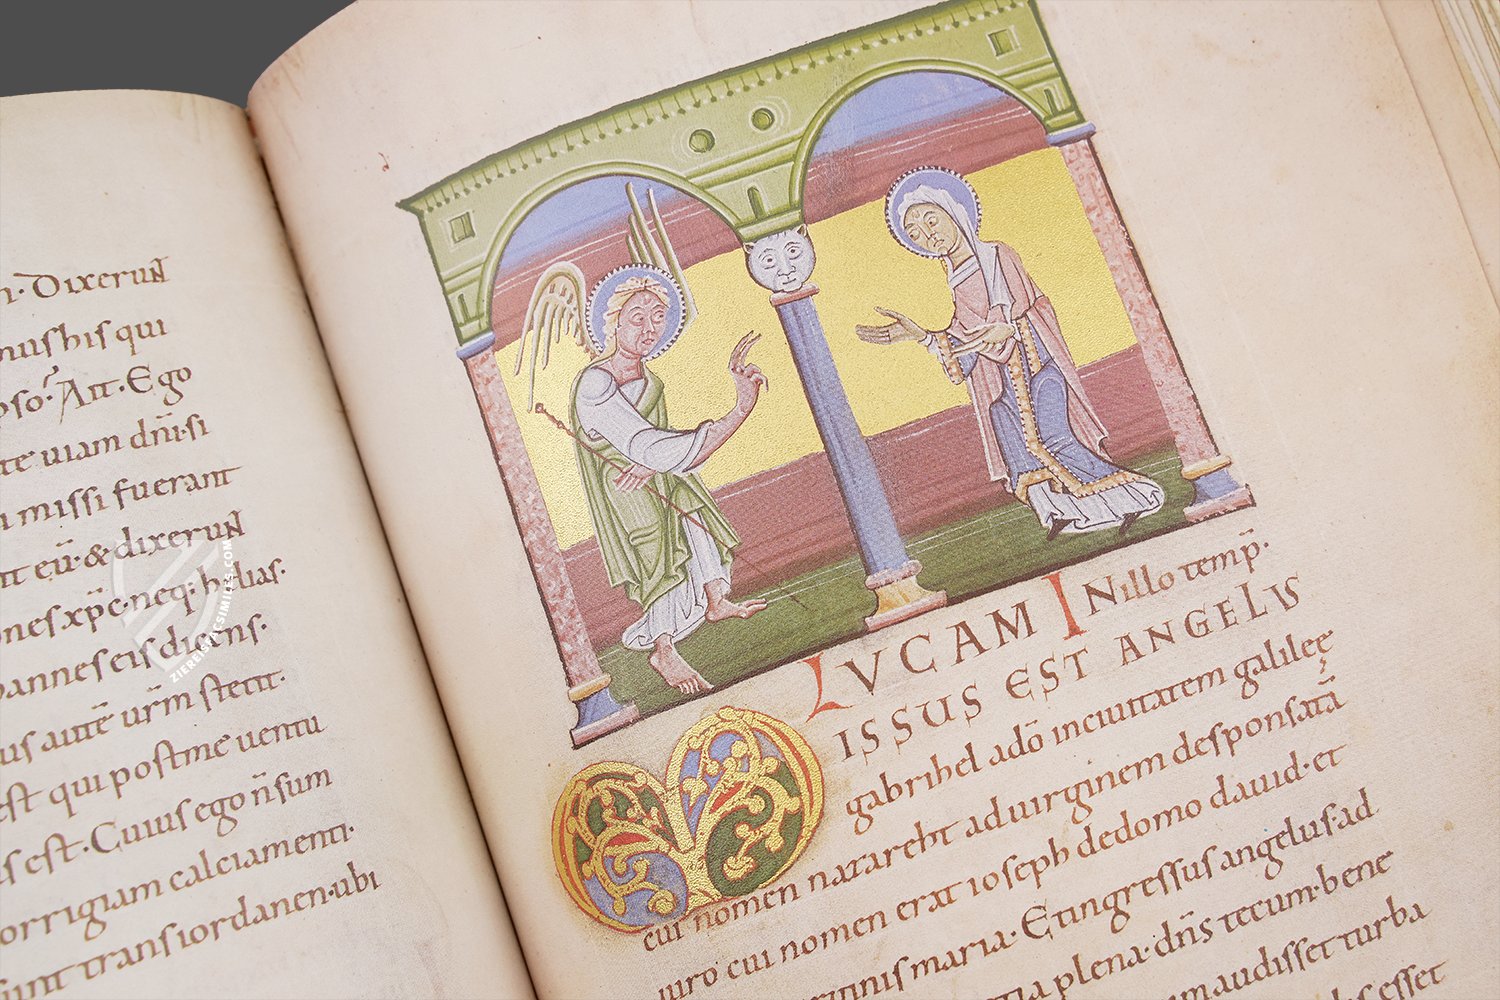 n·Dixerun
nus his qui
pso· Ait·Ego
te uiam dn̄i·si
missi fuerant
eū·& dixerun
ones xp̄c·neq; helias·
annes eis dicens·
us autē ur̄m stetit·
est qui post me uentu
s est·Cuius ego n̄ sum
orrigiam calciamenti·
sunt trans iordanen·ubi
LVCAM INillo temp̄·
ISSUS EST ANGELVS
gabrihel adō inciuitatem galileę
cui nomen nazareht aduirginem desponsatā
uiro cui nomen erat ioseph dedomo dauid·et
uirginis maria·Etingressus angelus·ad
tia plena·dn̄s tecum·bene
m audisset turba
esset
ZIEREIS FACSIMILES.COM